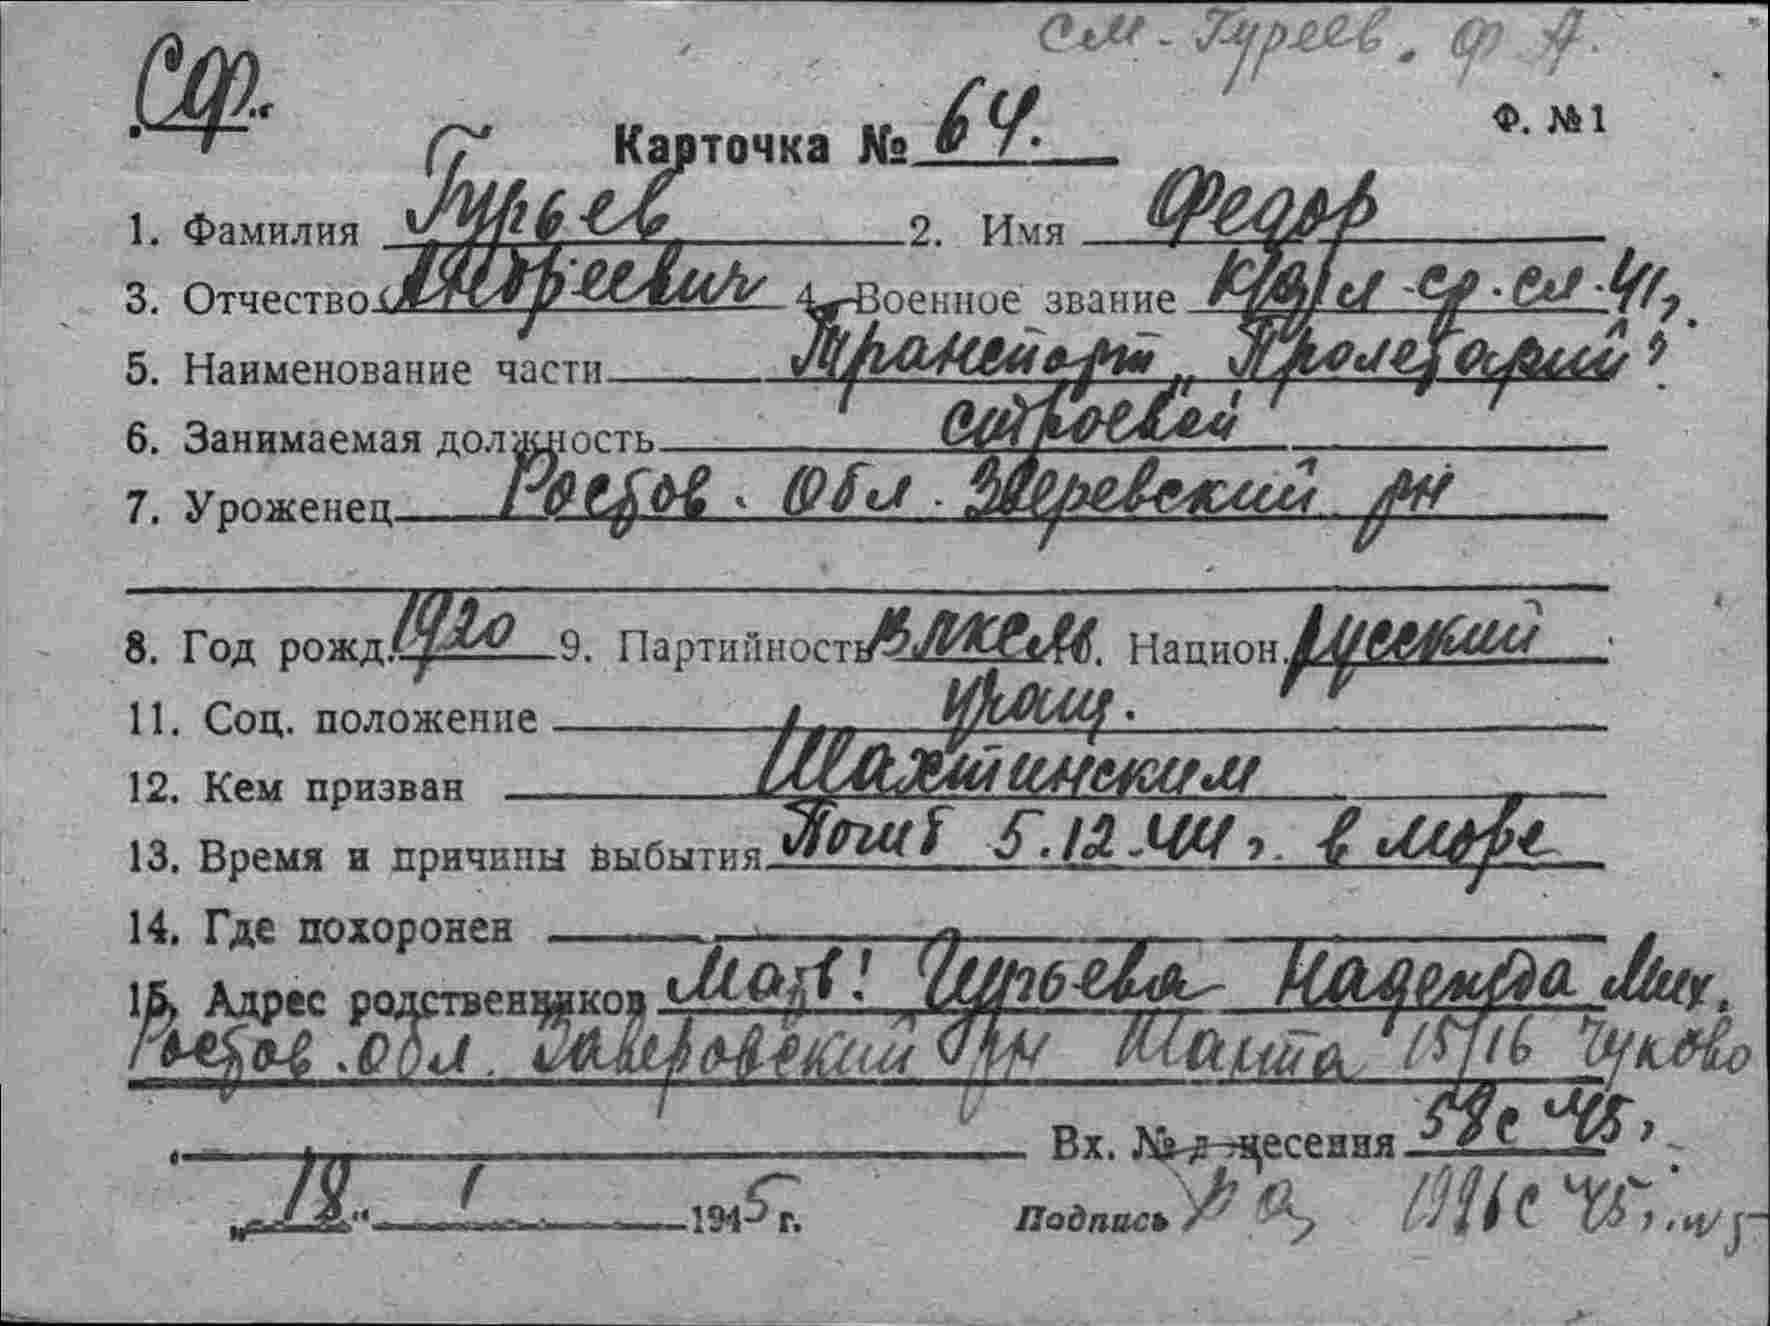 см. Гуреев. Ф А.
СФ.
Карточка № 64.
Ф. №1
1. Фамилия Гурьев 2. Имя Федор
3. Отчество Андреевич 4. Военное звание к/ф/л ср. сл. 41 г.
5. Наименование части Транспорт „Пролетарий"
6. Занимаемая должность строевой
7. Уроженец Ростов. Обл. Зверевский рн
8. Год рожд. 1920 9. Партийность ВЛКСМ. Национ. русский
11. Соц. положение учащ.
12. Кем призван Шахтинским
13. Время и причины выбытия Погиб 5.12.41 г. в море
14. Где похоронен
15. Адрес родственников Мать! Гурьева Надежда Мих.
Ростов. обл. Заверовский рн Шахта 15/16 Чуково
Вх. № донесения 58с 45 г.
„18" 1 1945 г. Подпись 1996с 45 г.